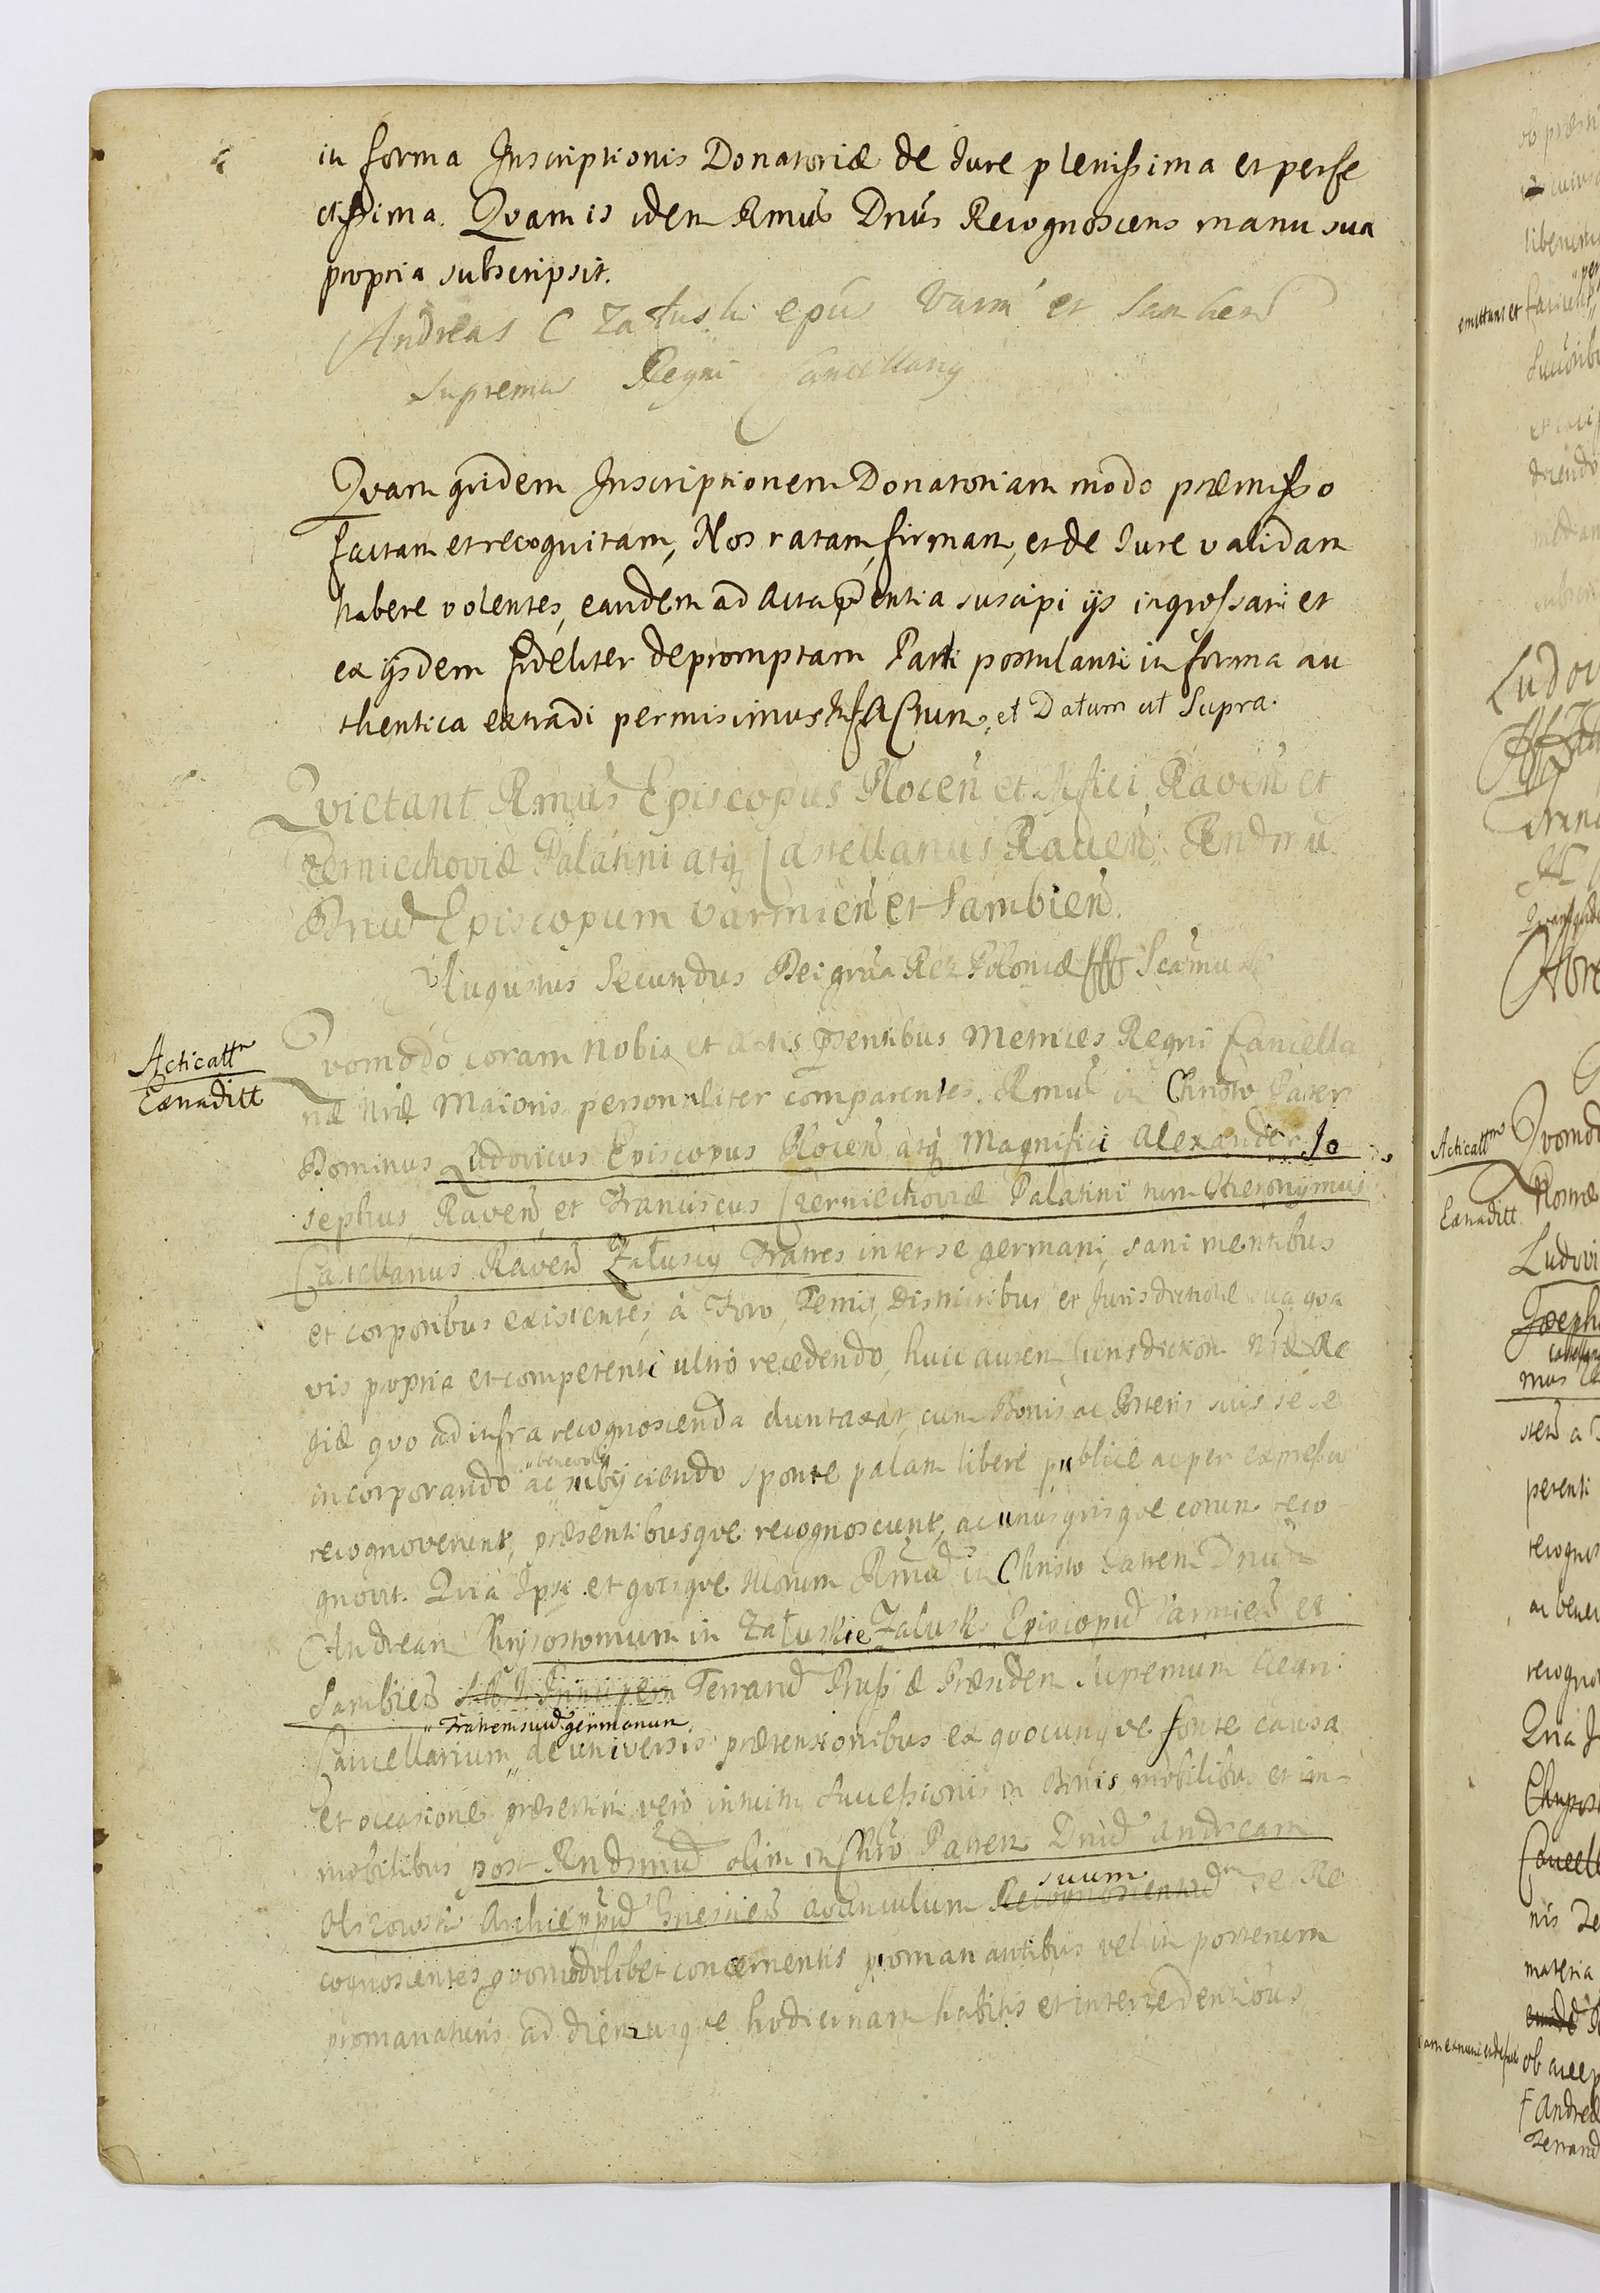 in forma Inscriptionis Donatoriæ de Jure plenissima et perfe
ctissima. Qvam is idem Rmus Dnus Recognoscens manu sua
propria subscripsit.
Andreas C Załuski epus Varm et Sambien
Supremus Regni Cancellarius
Qvam qvidem Inscriptionem Donatoriam modo præmisso
factam et recognitam, Nos ratam, firmam, et de Jure validam
habere volentes, eandem ad Acta pñtia suscipi ijs ingrossari et
ex ijsdem fideliter depromptam Parti postulanti in forma au
thentica extradi permisimus Actum, et Datum ut Supra.
Qvietant Rmus Episcopus Plocen et Mfici Raven et
Czerniechoviæ Palatini atq Castellanus Raven Rndmu
Dnud Episcopum Varmien et Sambien.
Augustus Secundus Dei gra Rex Poloniæ Scamus
Acticattr
Exnaditt
Qvomodo coram nobis et Actis pñsentibus Metrices Regni Cancella
riæ Nræ Maioris personaliter comparentes. Rmus in Christo Pater
Dominus Ludovicus Episcopus Plocen atq Magnifici Alexander Jo
sephus Raven et Franciscus Czerniechoviæ Palatini tum Hieronymus
Castellanus Raven Załuscy Fratres inter se germani, sani mentibus
et corporibus existentes, à Foro, Terris, Districtibus et Jurisdictione sua qva
vis propria et competenti ultro recedendo, huic autem Jurisdiction Nræ Re
giæ qvo ad infra recognoscenda duntaxat, cum Bonis ac Posteris suis se se
incorporando ac "benevole" subijciendo sponte palam liberè publicè ac per expressum
recognoverunt, præsentibusqve recognoscunt, ac unusqvisqve eorum reco
gnovit. Qvia Ipsi et qvisqve illorum Rmud in Christo Patrem Dnud
Andream Chrysostomum in Załuskie Załuski Episcopud Varmien et
Sambien S.R.I. Principem Terrarud Prussiæ Præsiden Supremum Regni
Cancellarium "Fratrem suud germanum" de universis prætensionibus ex qvocunqve fonte causa
et occasione præsertim vero intuitu Successionis in Bonis mobilibus et im
mobilibus post Rndsmud olim in Chro Patrem Dnud Andream
Olszowski Archieppud Gnesnen avunculum Recognoscentiud suum se Re
cognoscentes qvomodolibet concernentis promanantibus vel in posterum
promanaturis ad diem usqve hodiernam habitis et intercedentibus